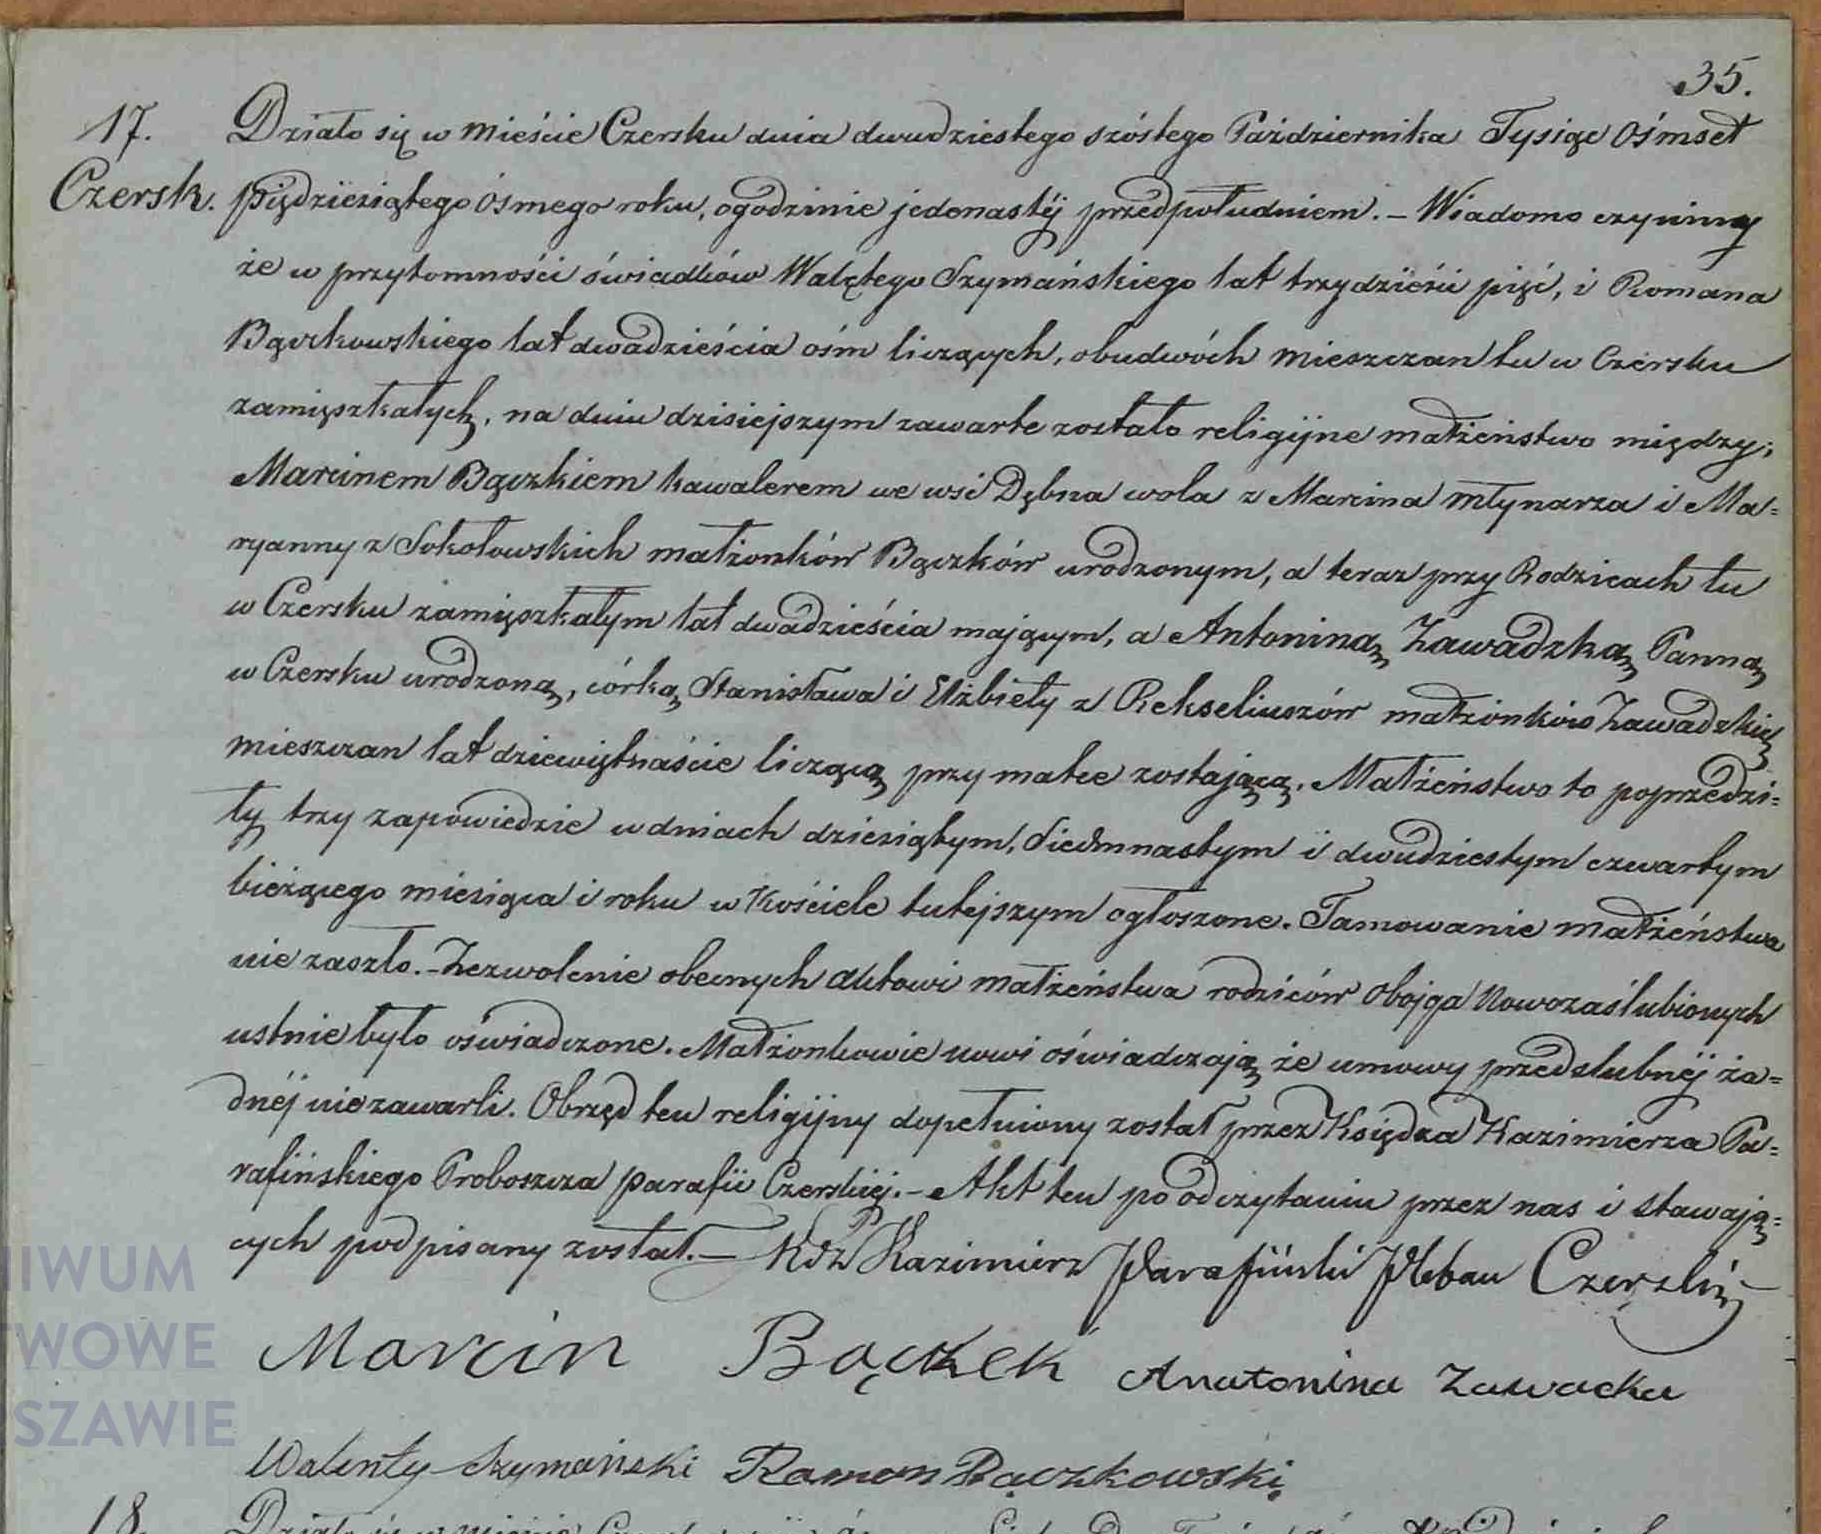 35.
17. Działo się w Mieście Czersku dnia dwudziestego szóstego Października Tysiąc Ośmset
Czersk. piędziesiątego ósmego roku, o godzinie jedenastéj przedpołudniem. – Wiadomo czyniny
że w przytomności świadków Walętego Szymańskiego lat trzydzieści pięć, i Romana
Bączkowskiego lat dwadzieścia ośm liczących, obudwóch mieszczan tu w Czersku
zamięszkałych, na dniu dzisiejszym zawarte zostało religijne małżeństwo między;
Marcinem Bączkiem kawalerem we wsi Dębna wola z Marcina młynarza i Ma=
ryanny z Sokołowskich małżonków Bączków urodzonym, a teraz przy Rodzicach tu
w Czersku zamięszkałym lat dwadzieścia mającym, a Antoniną Zawadzką Panną
w Czersku urodzoną, córką Stanisława i Elżbiety z Rekseliuszów małżonków Zawadzkich
mieszczan lat dziewiętnaście liczącą przy matce zostającą. Małżeństwo to poprzedzi=
ły trzy zapowiedzie w dniach dziesiątym, Siedmnastym i dwudziestym czwartym
bieżącego miesiąca i roku w Kościele tutejszym ogłoszone. Tamowanie małżeństwa
nie zaszło. – Zezwolenie obecnych aktowi małżeństwa rodziców obojga Nowozaślubionych
ustnie było oświadczone. Małżonkowie nowi oświadczają że umowy przedślubnéj ża=
dnéj nie zawarli. Obrzęd ten religijny dopełniony został przez Księdza Kazimierza Pa=
rafińskiego Proboszcza parafii Czerskiéj. – Akt ten po odczytaniu przez nas i stawają=
cych podpisany został. – Kdz Kazimierz Parafiński Pleban Czerski
Marcin Bączek Anatonina Zawacka
Walenty Szymański Roman Bączkowski
IWUM
TWOWE
SZAWIE
18. Działo się w Mieście